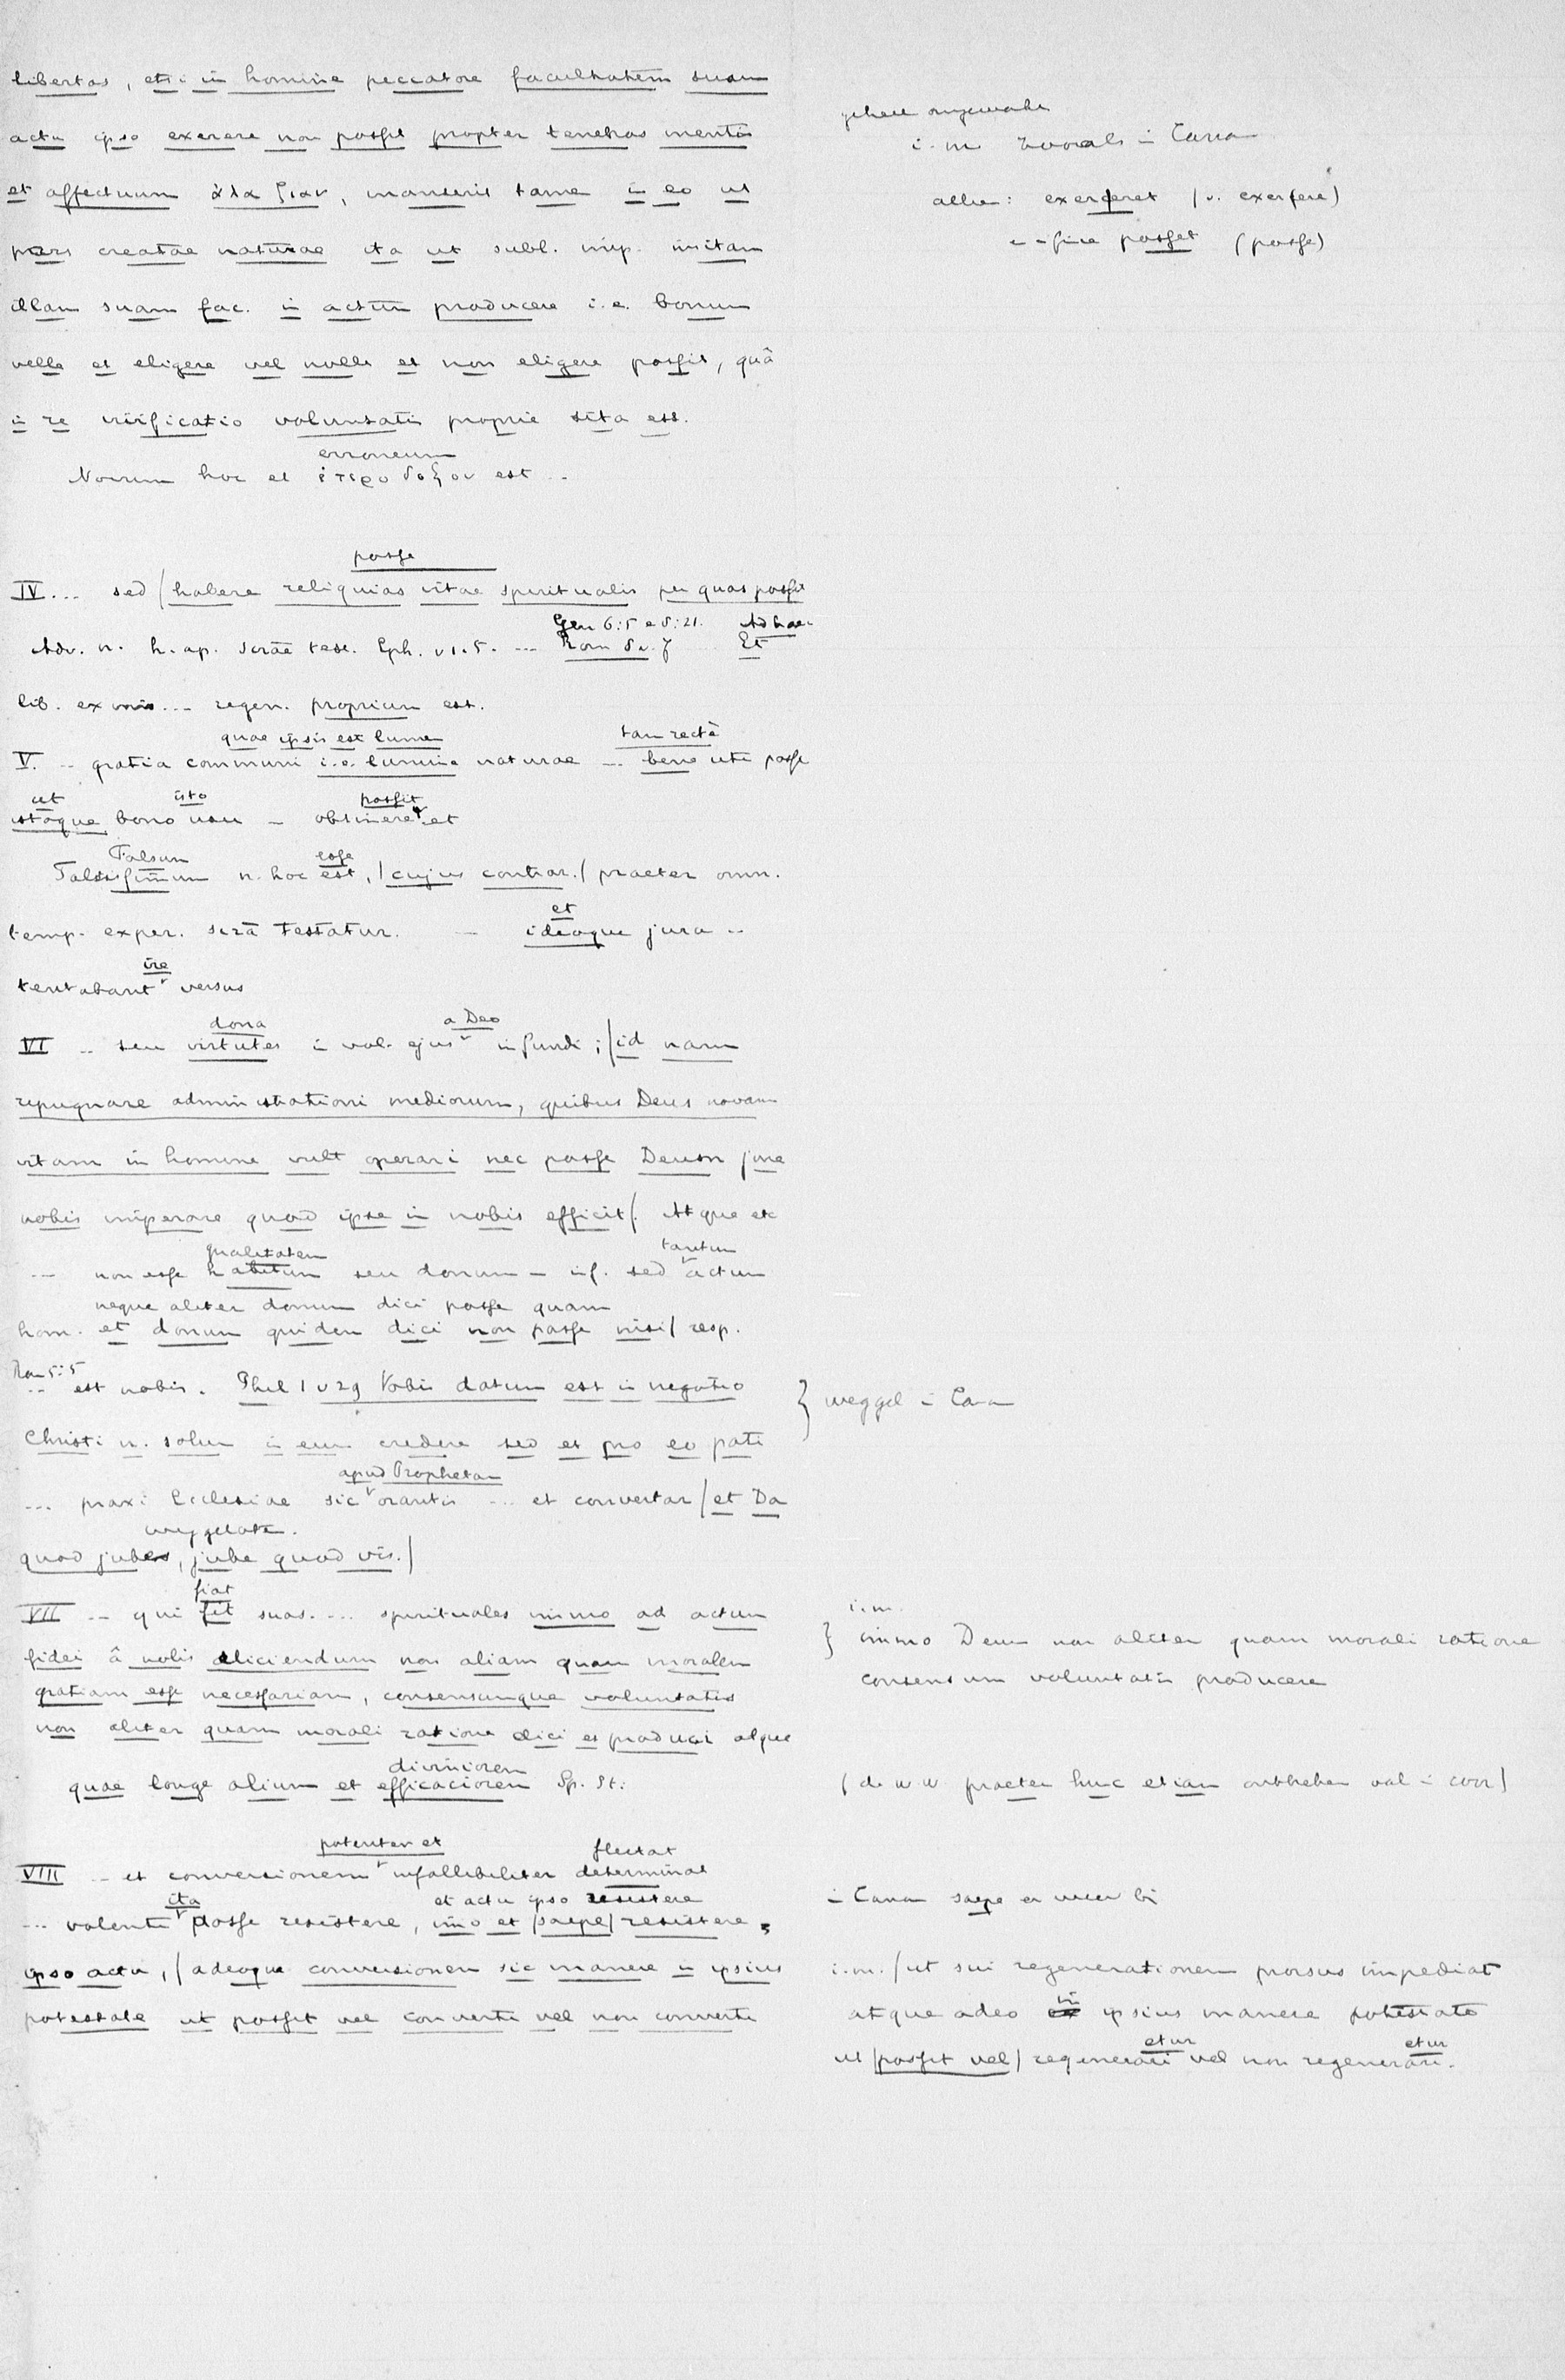 libertas, etsi in homine peccatore facultatem suam
actu ipso exerere non possit propter tenebras mentis
et affectuum ἀταξίαν, manserit tamen in eo ut
pars creatae naturae ita ut subl. imp. insitam
illam suam fac. in actum producere i.e. bonum
velle et eligere vel nolle et non eligere possit, quâ
in re vivificatio voluntatis proprie sita est.
erroneum
Novum hoc et ἑτερόδοξον est ..
posse
IV ... sed / habere reliquias vitae spiritualis per quas possit
Gen 6:5 e 8:21. Ad haec
Adv. n. h. ap. scrae test. Eph. v 1.5. ... Rom 8 v. 7 Et
lib. ex ... regen. proprium est.
quae ipsis est lumen tam recte
V. .. gratia communi i.e. lumine naturae ... bene uti posse
ut isto possit
istoque bono usu – obtinere et
Falsum esse
Falsissimum n. hoc est, / cujus contrar. / praeter omn.
et
temp. exper. scra testatur. – ideoque jura ..
ire
tentabant versus
dona a Deo
VI .. seu virtutes in vol. ejus infundi; / id nam
repugnare administrationi mediorum, quibus Deus novam
vitam in homine vult operari nec posse Deum jure
nobis imperare quod ipse in nobis efficit /. Atque etc
qualitatem tantum
... non esse habitum seu donum – inf. sed actum
neque aliter donum dici posse quam
hom. et donum quidem dici non posse nisi / resp.
Rom 5:5
.. est nobis. Phil 1 v 29 Vobis datum est in negotio
Christi n. solum in eum credere sed et pro eo pati
apud Prophetam
... praxi Ecclesiae sic orantis ... et convertar / et Da
weggelaten.
quod jubes, jube quod vis. /
fiat
VII .. qui fit suas. ... spirituales immo ad actum
fidei â nobis eliciendum non aliam quam moralem
gratiam esse necessariam, consensumque voluntatis
non aliter quam morali ratione elici et produci atque
diviniorem
quae longe alium et efficaciorem Sp. Sti:
potenter et flectat
VIII .. et conversionem infallibiliter determinat
ita et actu ipso resistere
... volenti posse resistere, imo et / saepe / resistere,
ipso actu, / adeoque conversionem sic manere in ipsius
potestate ut possit vel converti vel non converti
i. m. zooals in Canon
allen: exerceret (v. exercere)
in fine posset (posse)
} weggel in Canon
i. m.
} immo Deum non aliter quam morali ratione
consensum voluntatis producere
(de w w praeter hunc etiam ontbreken val in corr)
in Canon saepe er weer bij
i. m. / ut sui regenerationem prorsus impediat
in
atque adeo ex ipsius manere potestate
etur etur
ut / possit vel / regenerari vel non regenerari.